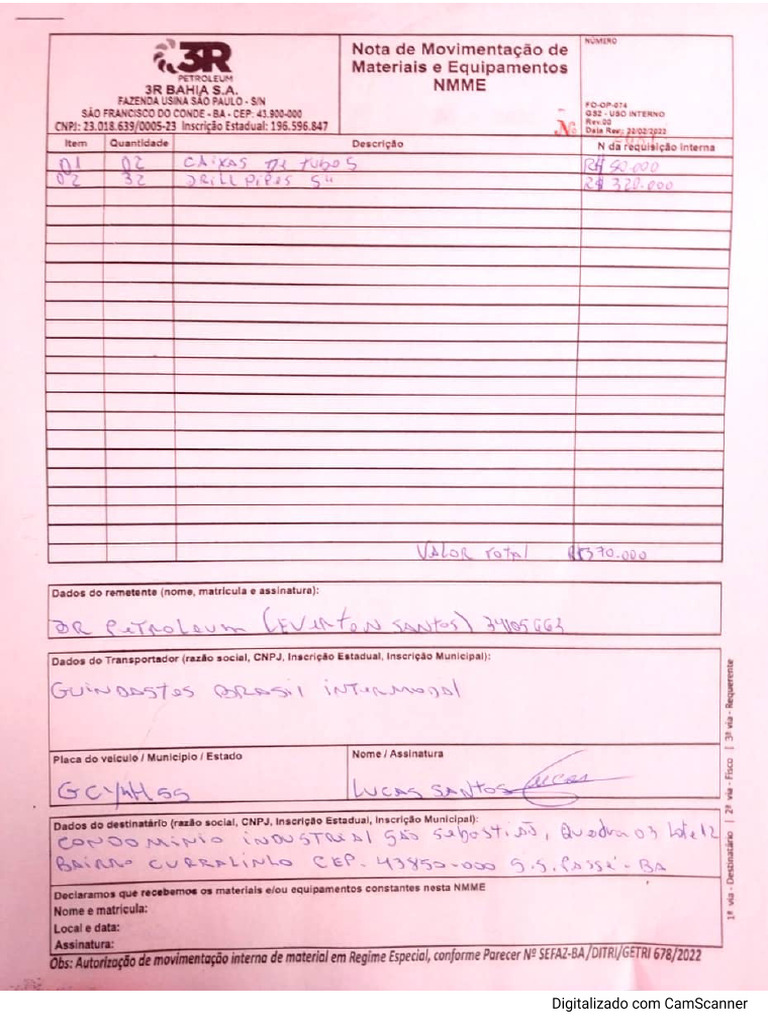 3R
PETROLEUM
3R BAHIA S.A.
FAZENDA USINA SÃO PAULO - S/N
SÃO FRANCISCO DO CONDE - BA - CEP: 43.900-000
CNPJ: 23.018.639/0005-23 Inscrição Estadual: 196.596.847
Nota de Movimentação de
Materiais e Equipamentos
NMME
NÚMERO
FO-OP-074
GS2 - USO INTERNO
Rev.00
Nº
Item Quantidade Descrição N da requisição interna
01 02 CAIXAS DE TUBOS R$ 50.000
02 32 DRILL PIPES 5" R$ 320.000
VALOR TOTAL R$370.000
Dados do remetente (nome, matricula e assinatura):
3R PETROLEUM (EVERTON SANTOS)
Dados do Transportador (razão social, CNPJ, Inscrição Estadual, Inscrição Municipal):
GUINDASTES BRASIL INTERMODAL
Placa do veiculo / Município / Estado
Nome / Assinatura
LUCAS SANTOS Lucas
Dados do destinatário (razão social, CNPJ, Inscrição Estadual, Inscrição Municipal):
CONDOMINIO INDUSTRIAL SÃO SEBASTIÃO, Quadra 03 Lote 12
BAIRRO CURRALINHO CEP- 43850-000 S.S. PASSÉ - BA
Declaramos que recebemos os materiais e/ou equipamentos constantes nesta NMME
Nome e matricula:
Local e data:
Assinatura:
Obs: Autorização de movimentação interna de material em Regime Especial, conforme Parecer Nº SEFAZ-BA/DITRI/GETRI 678/2022
1ª via - Destinatário | 2ª via - Fisco | 3ª via - Requerente
Digitalizado com CamScanner